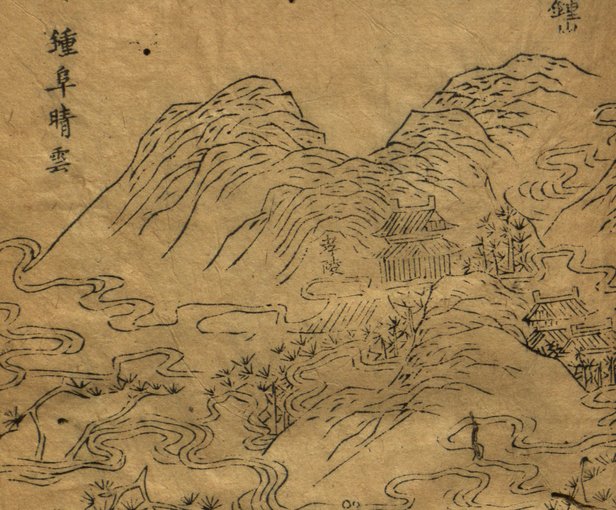 鍾山
鍾阜晴雲
孝陵